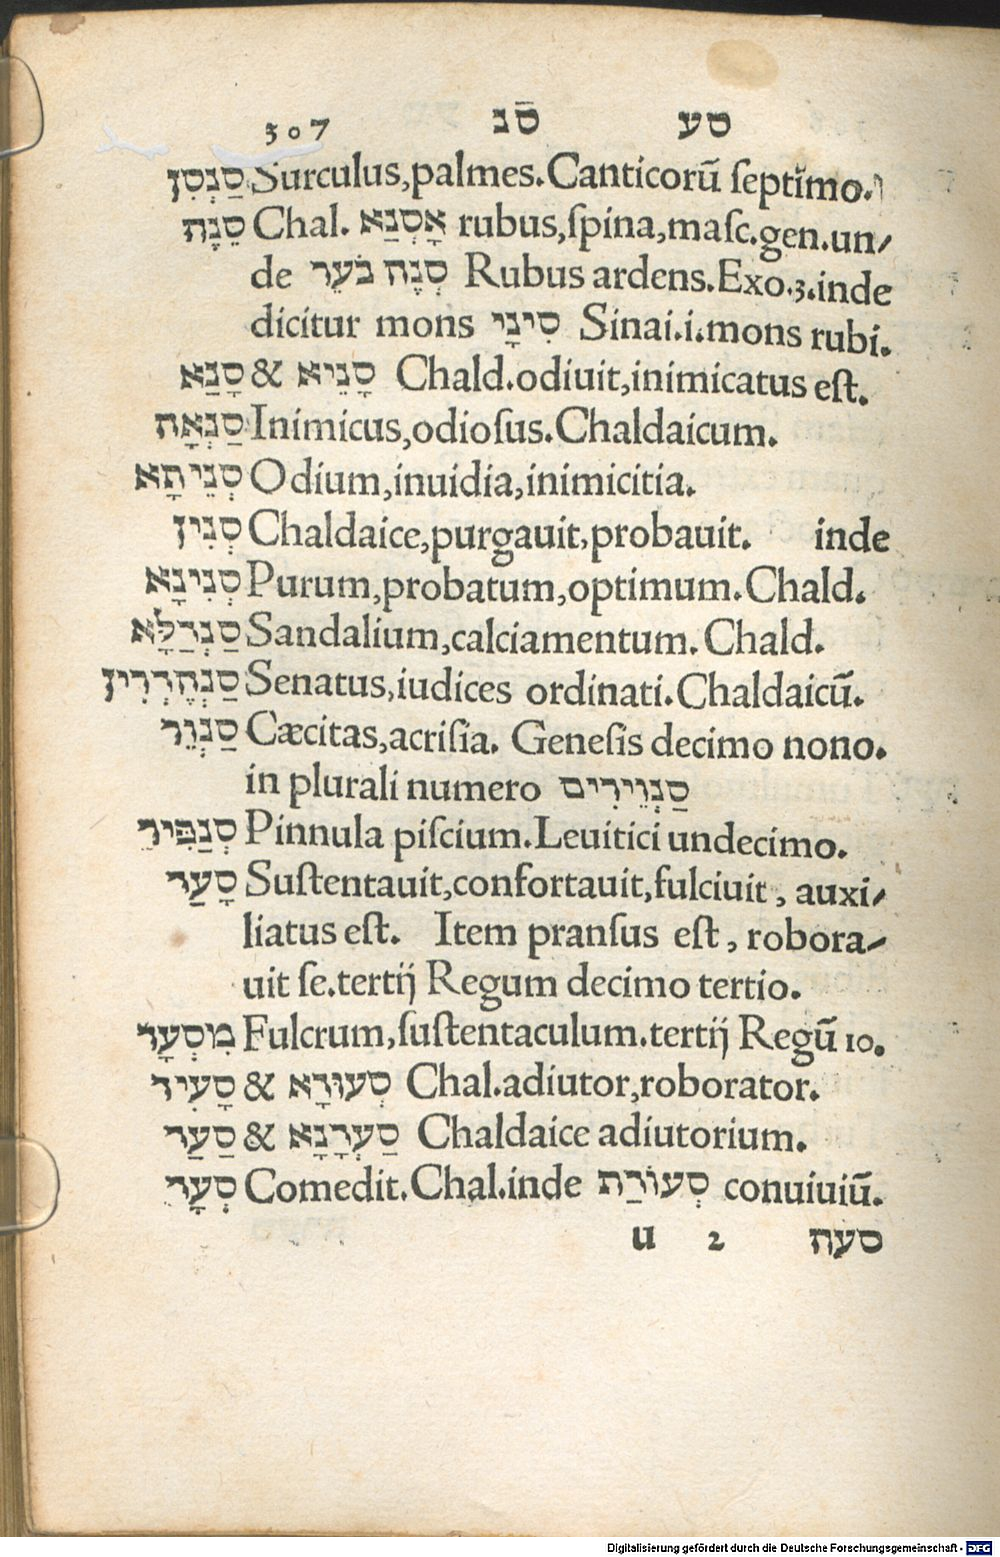 307 סנ סע
סַנְסִן Surculus,palmes.Canticorū ſeptimo.
סֵנֶה Chal. אָסְנַא rubus,ſpina,maſc.gen.un⸗
de סְנֶה בֹּעֵר Rubus ardens.Exo.3.inde
dicitur mons סִינָי Sinai.i.mons rubi.
סָנַא & סָנֵיא Chald.odiuit,inimicatus eſt.
סַנְאָה Inimicus,odioſus.Chaldaicum.
סְנֵיתָא Odium,inuidia,inimicitia.
סְנִין Chaldaice,purgauit,probauit. inde
סְנִינָא Purum,probatum,optimum.Chald.
סַנְדַלָּא Sandalium,calciamentum.Chald.
סַנְהֶדְרִין Senatus,iudices ordinati.Chaldaicū.
סַנְוֵר Cæcitas,acriſia. Geneſis decimo nono.
in plurali numero סַנְוֵירִים
סְנַפִּיר Pinnula piſcium.Leuitici undecimo.
סָעַר Suſtentauit,confortauit,fulciuit, auxi⸗
liatus eſt. Item pranſus eſt, robora⸗
uit ſe.tertij Regum decimo tertio.
מִסְעָר Fulcrum,ſuſtentaculum.tertij Regū 10.
סָעִיד & סְעוּרָא Chal.adiutor,roborator.
סַעַר & סַעְרָנָא Chaldaice adiutorium.
סְעָר Comedit.Chal.inde סְעוֹרַת conuiuiū.
u 2 סעה